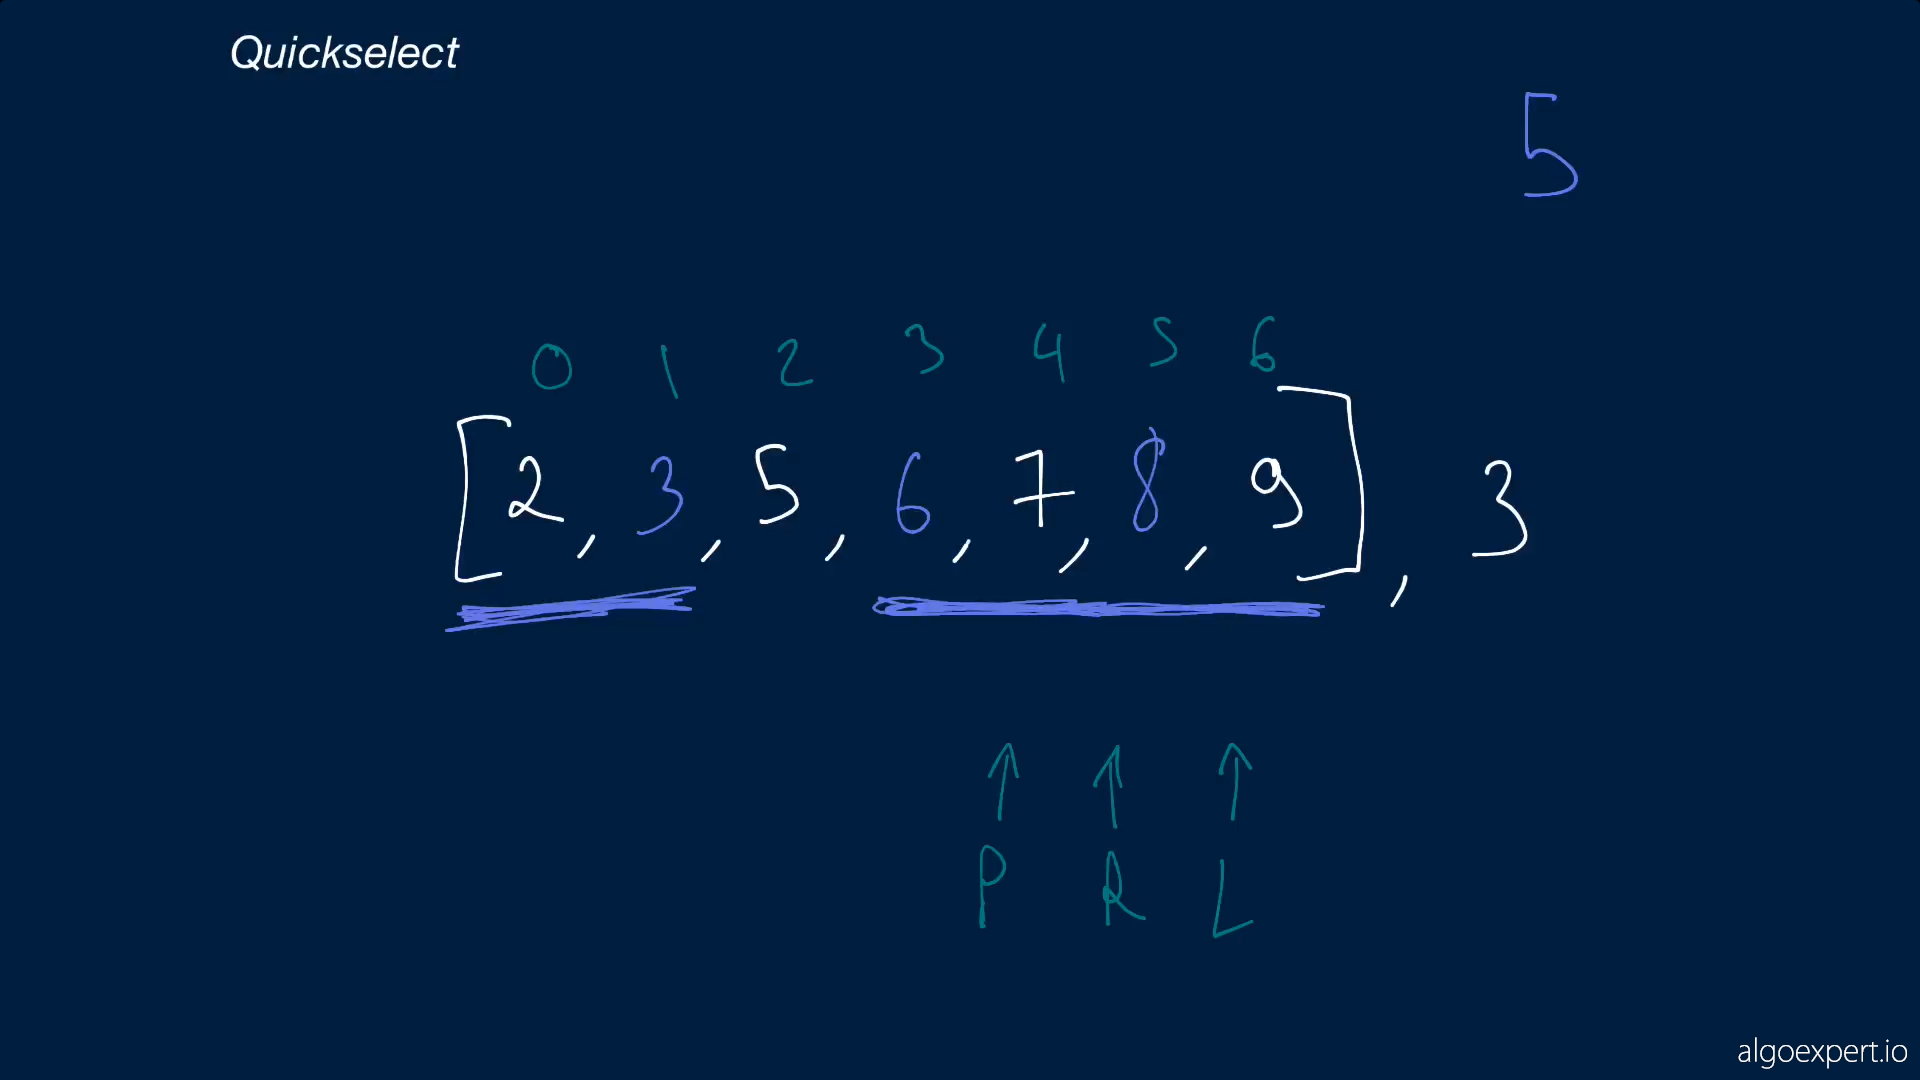 Quickselect
5
0 1 2 3 4 5 6
[2, 3, 5, 6, 7, 8, 9], 3
P R L
algoexpert.io